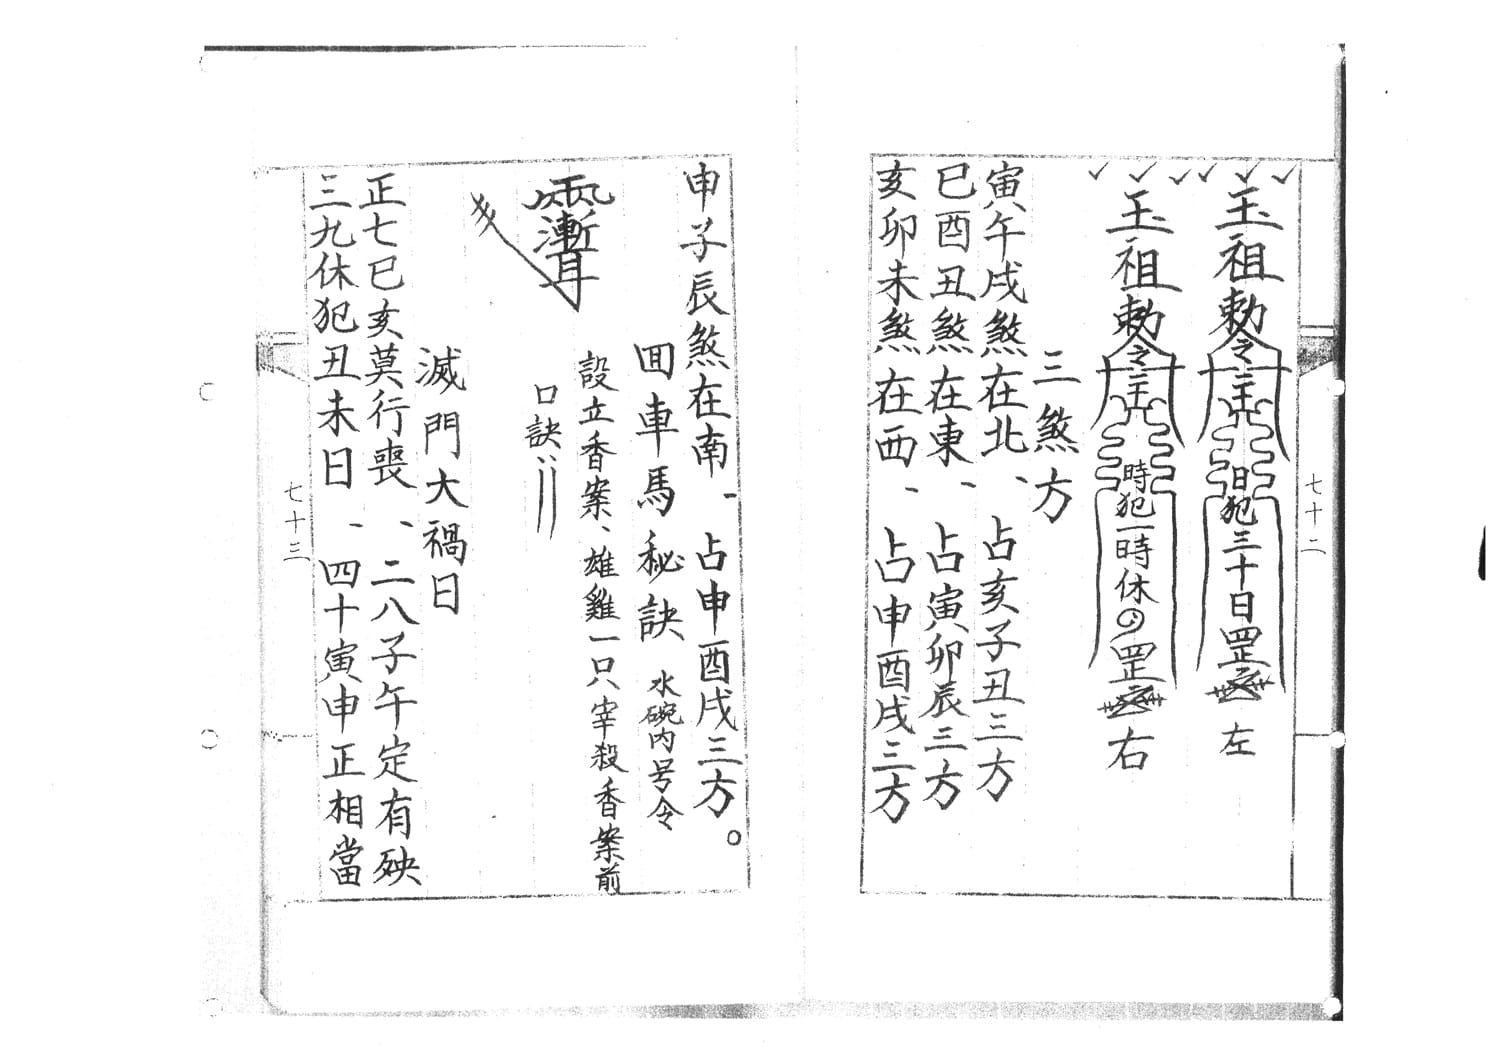 七十二
玉祖勅令 日犯三十日罡 左
玉祖勅令 時犯一時休 罡 右
三煞方
寅午戌煞在北、占亥子丑三方
巳酉丑煞在東、占寅卯辰三方
亥卯未煞在西、占申酉戌三方
申子辰煞在南、占申酉戌三方。
回車馬秘訣 水碗內号令
設立香案、雄雞一只宰殺香案前
口訣：
滅門大禍日
正七巳亥莫行喪、二八子午定有殃
三九休犯丑未日、四十寅申正相當
七十三